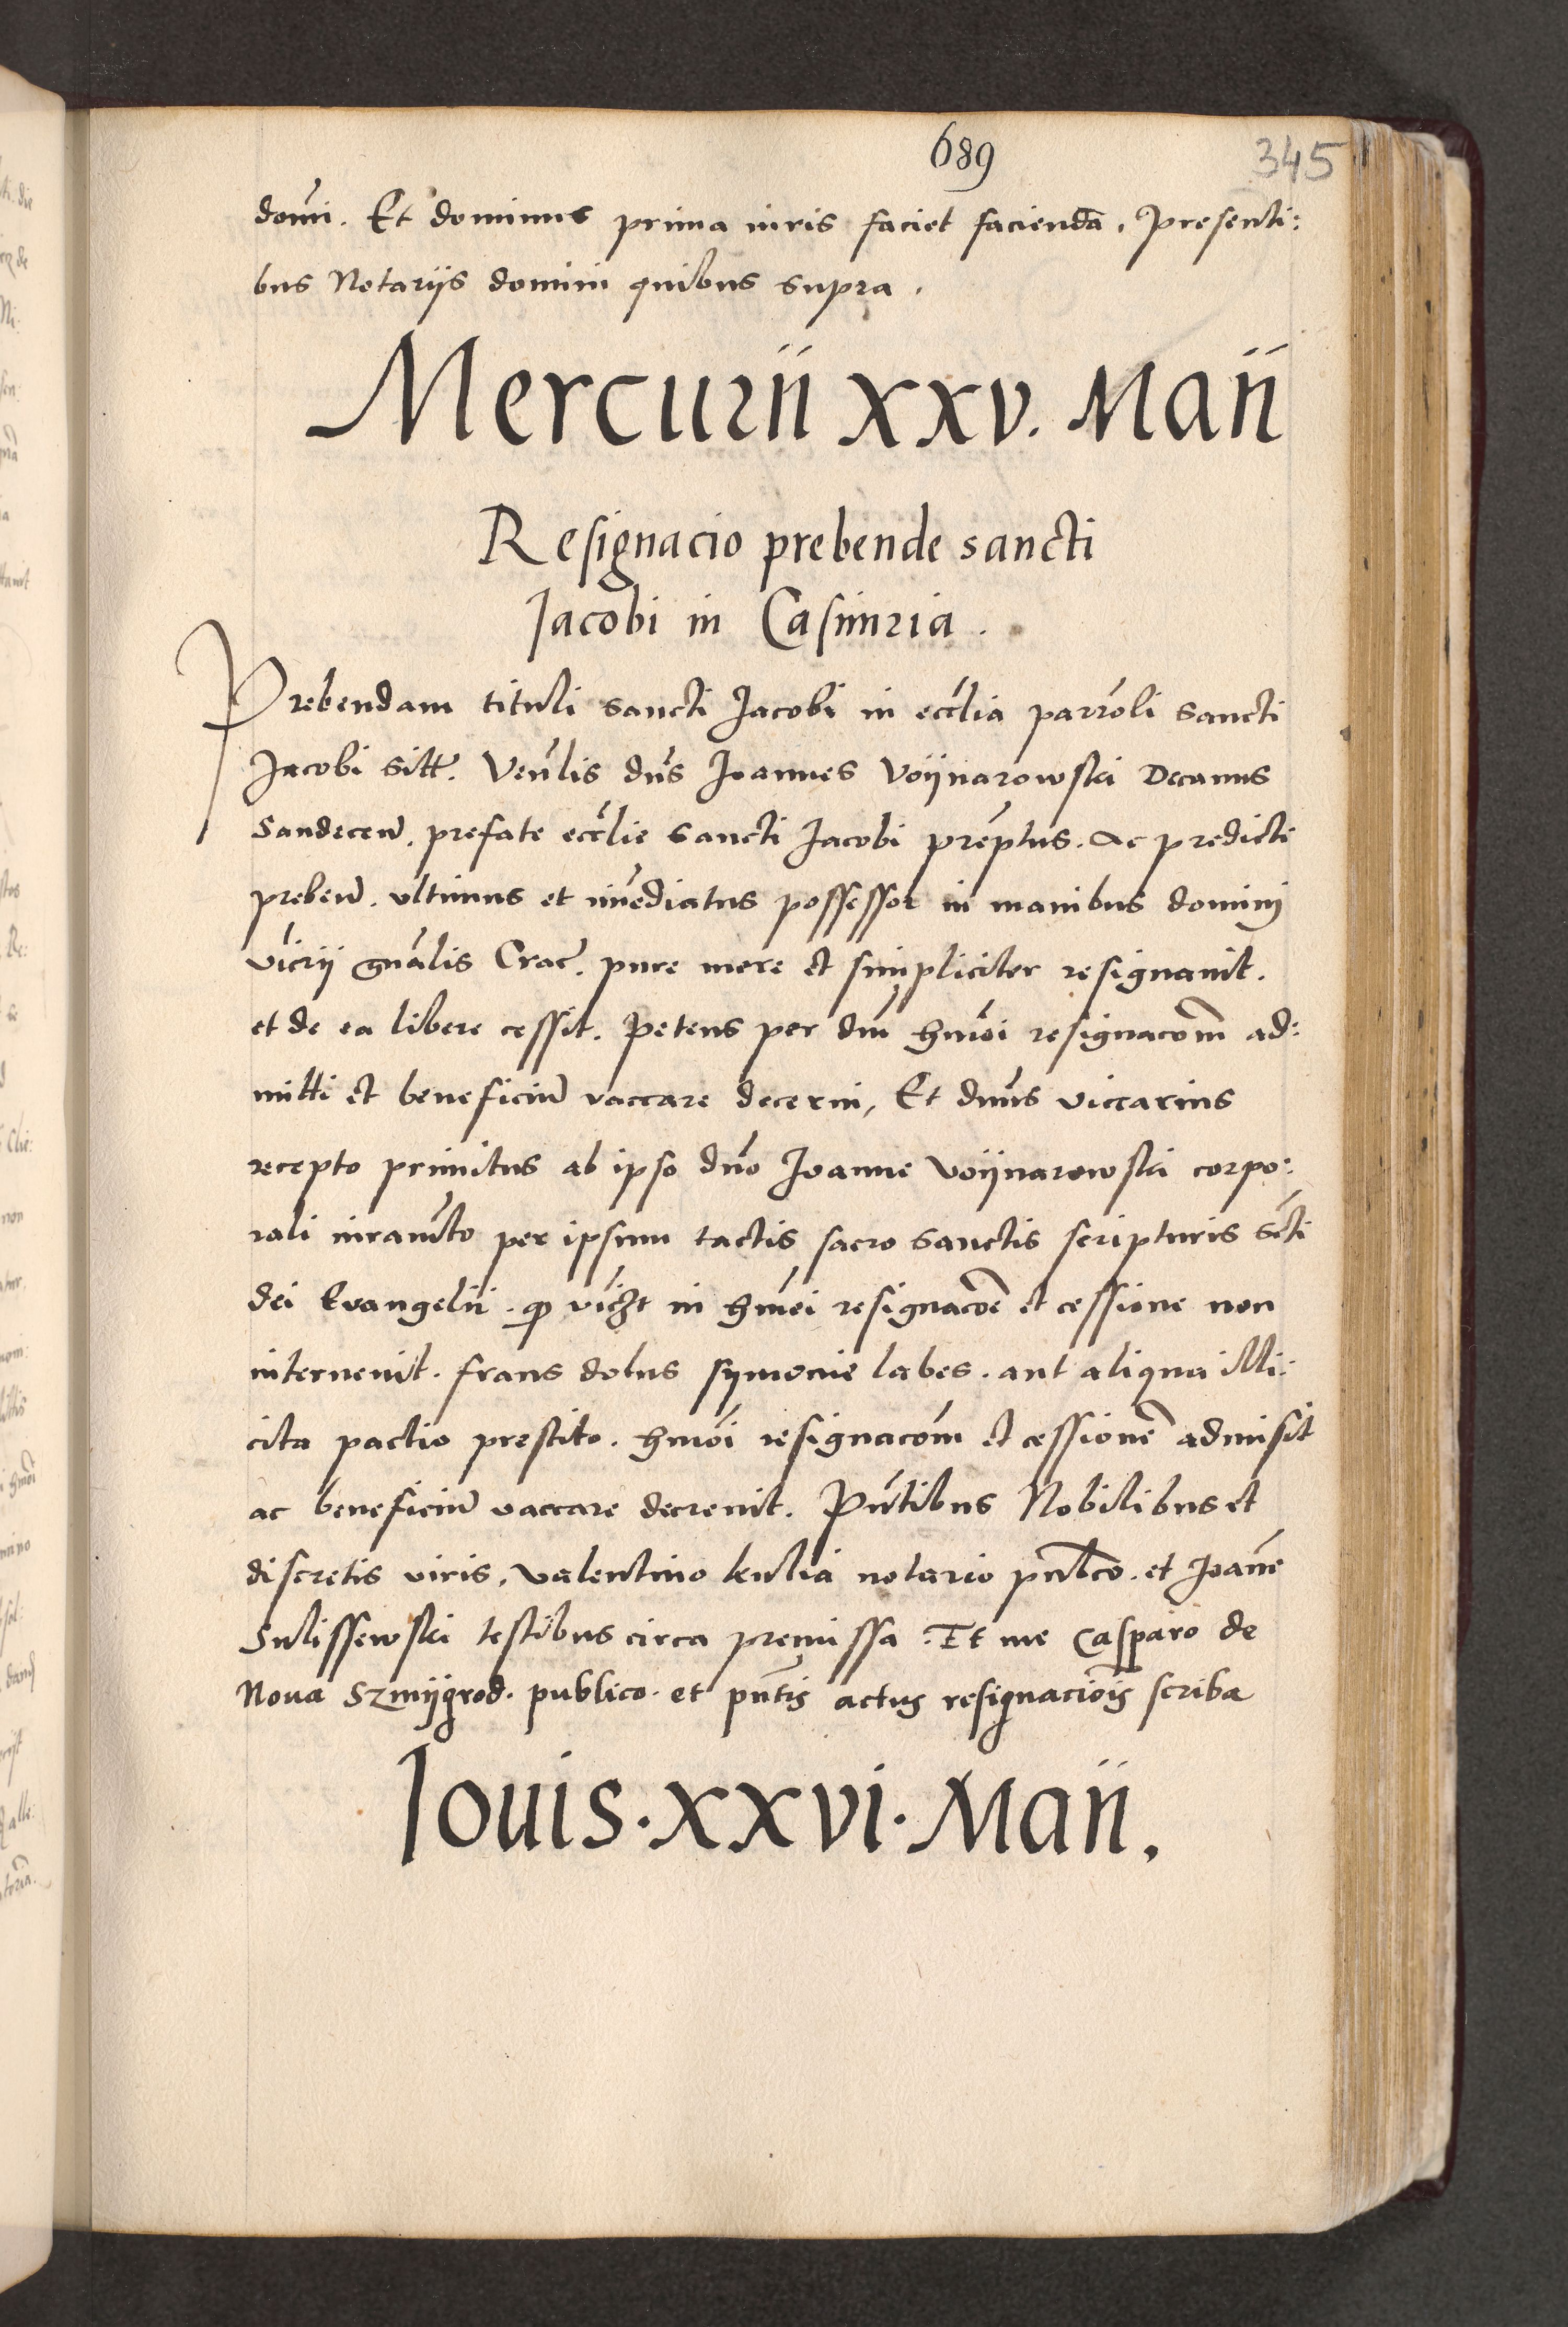 689
345
domi. Et dominus prima iuris faciet facienda. Presenti:
bus Notariis domini quibus supra.
Mercurii xxv. Maii
Resignacio prebende sancti
Jacobi in Casimria.
Prebendam tituli sancti Jacobi in ecclia parroli sancti
Jacobi sitt. Venlis dns Joannes Voijnarowski Decanus
Sandecen. prefate ecclie sancti Jacobi preptus. Ac predicti
preben. ultimus et imediatus possessor in manibus domini
vicrii gnalis Crac. pure mere et simpliciter resignavit.
et de ea libere cessit. Petens per dm hmoi resignacom ad:
mitti et beneficium vaccare decerni, Et dnus viccarius
recepto primitus ab ipso dno Joanne Voijnarowski corpo:
rali iuramto per ipsum tactis sacro sanctis scripturis scti
dei Evangelii. in hmoi resignacoe et cessione non
intervenit. fraus dolus symonie labes. aut aliqua illi:
cita pactio prestito. hmoi resignacom et cessione admisit
ac beneficium vaccare decrevit. Pntibus Nobilibus et
discretis viris. Valentino notario publco. et Joanne
Sulissewski testibus circa premissa. Et me Casparo de
Nova Szmijgrod. publico. et pntis actus resignaciois scriba
Jouis. xxvi. Maii.